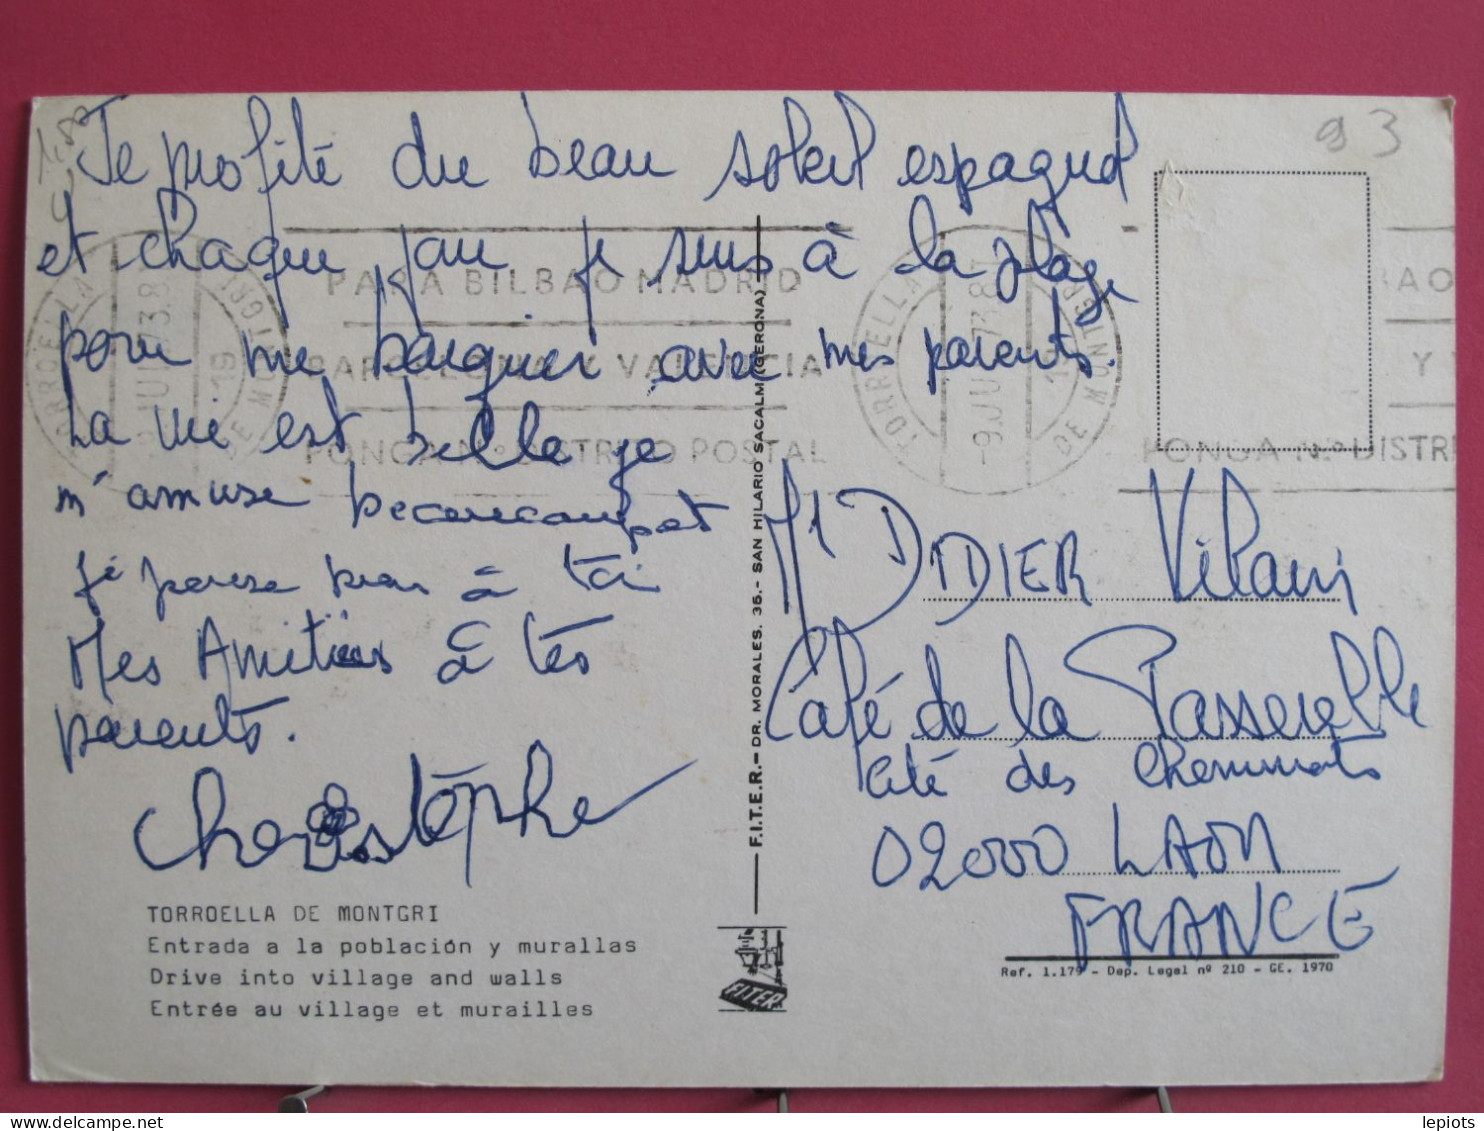 93
Je profite du beau soleil espagnol
et chaque jour je suis à la plage
pour me baigner avec mes parents.
La vie est belle je
m'amuse beaucoup et
je pense bien à toi
Mes Amitiés à tes
parents.
Christophe
TORROELLA DE MONTGRI
Entrada a la población y murallas
Drive into village and walls
Entrée au village et murailles
F.I.T.E.R.- DR. MORALES. 35.- SAN HILARIO SACALM (GERONA)
FITER
PARA BILBAO MADRID
BARCELONA Y VALENCIA
PONGA N.º DISTRITO POSTAL
TORROELLA DE MONTGRI
-9.JUL73.8
19
TORROELLA DE MONTGRI
-9.JUL73.8
19
BAO
Y
PONGA N.º DISTRI
Mr DIDIER Vilain
Café de la Passerelle
Cité des Cheminots
02000 LAON
FRANCE
Ref. 1.179 - Dep. Legal nº 210 - GE. 1970
lepiots